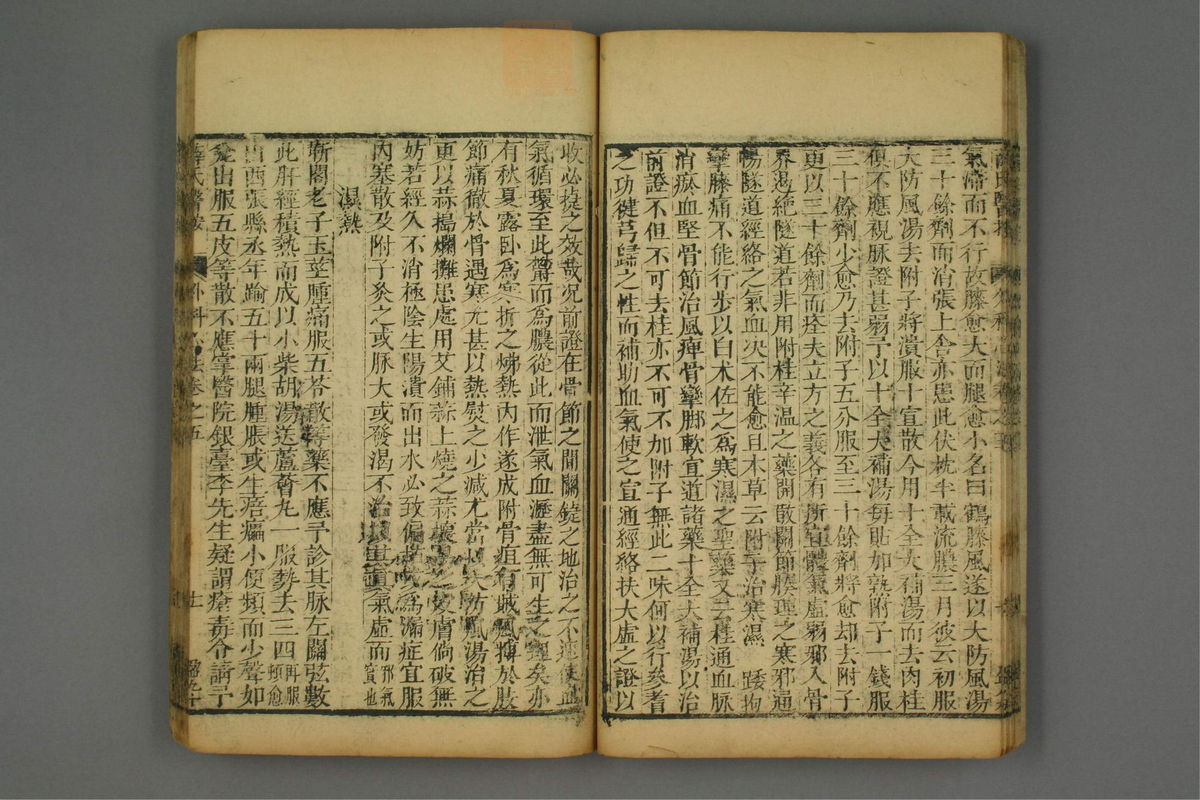 氣滯而不行故膝愈大而腿愈小名曰鶴膝風遂以大防風湯
三十餘劑而消張上舍亦患此伏枕半載流膿三月彼云初服
大防風湯去附子將潰服十宣散今用十全大補湯而去肉桂
俱不應視脉證甚弱予以十全大補湯每貼加熟附子一錢服
三十餘劑少愈乃去附子五分服至三十餘劑將愈却去附子
更以三十餘劑而痊夫立方之義各有所宜體氣虛弱邪入骨
界遏絶隧道若非用附桂辛温之藥開散關節腠理之寒邪通
暢隧道經絡之氣血決不能愈且本草云附子治寒濕 踒拘
攣膝痛不能行步以白术佐之爲寒濕之聖藥又云桂通血脉
消瘀血堅骨節治風痺骨攣脚軟宜道諸藥十全大補湯以治
前證不但不可去桂亦不可不加附子無此二味何以行參耆
之功徤芎歸之性而補助血氣使之宣通經絡扶大虛之證以
收必捷之效哉况前證在骨節之間關鍵之地治之不速使血
氣循環至此鬱而爲膿從此而泄氣血瀝盡無可生之理矣亦
有秋夏露卧爲寒折之焫熱内作遂成附骨疽有賊風搏於肢
節痛徹於骨遇寒尤甚以熱熨之少減尤當以大防風湯治之
更以蒜搗爛攤患處用艾鋪蒜上燒之蒜壞易之皮膚倘破無
妨若經久不消極陰生陽潰而出水必致偏枯或爲漏症宜服
内寒散及附子灸之或脉大或發渴不治以其真氣虛而邪氣
實也
濕熱
靳閣老子玉莖腫痛服五苓散等藥不應予診其脉左關弦數
此肝經積熱而成以小柴胡湯送蘆薈丸一服勢去三四再服
頓愈
山西張縣丞年踰五十兩腿腫脹或生痦㿔小便頻而少聲如
瓮出服五皮等散不應掌醫院銀臺李先生疑謂瘡毒令請予
薛氏醫按 外科心法卷之五 十二